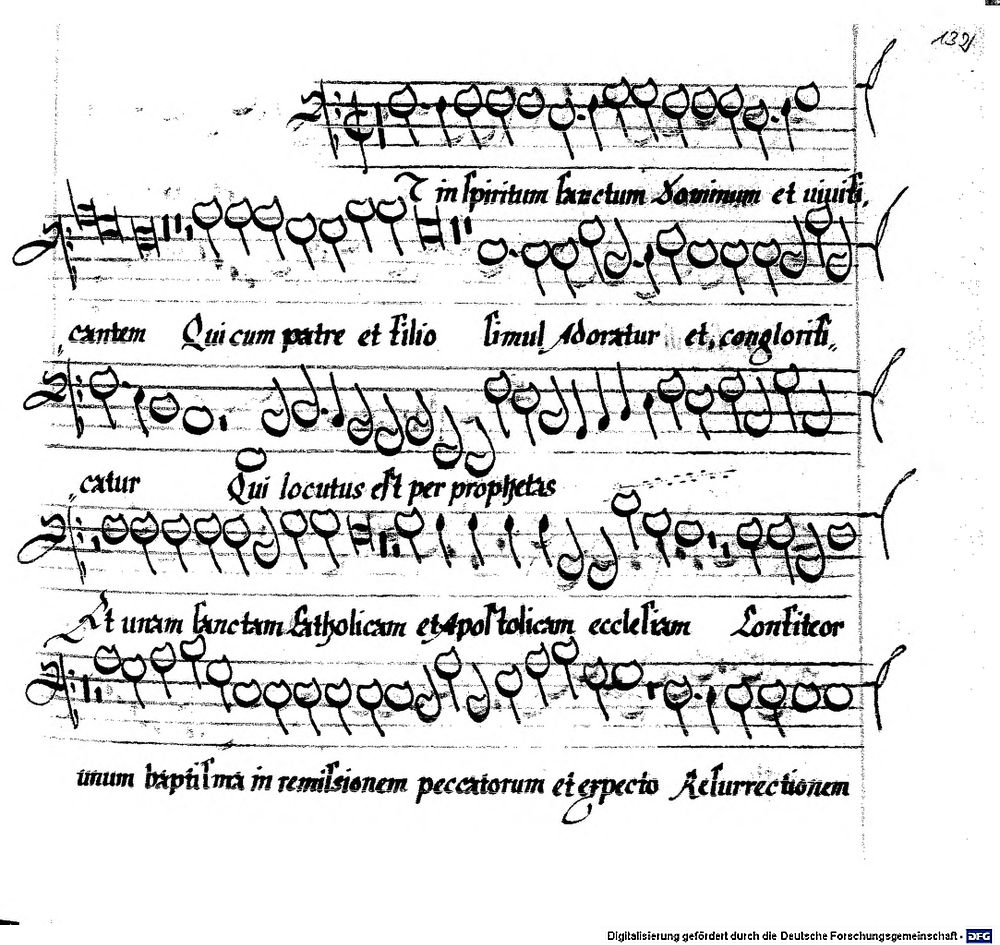 132
T in spiritum sanctum Dominum et vivifi,
cantem Qui cum patre et filio simul Adoratur et conglorifi,,
catur Qui locutus est per prophetas
Et unam sanctam Catholicam et Apostolicam ecclesiam Confiteor
unum baptisma in remissionem peccatorum et expecto Resurrectionem
Digitalisierung gefördert durch die Deutsche Forschungsgemeinschaft - DFG